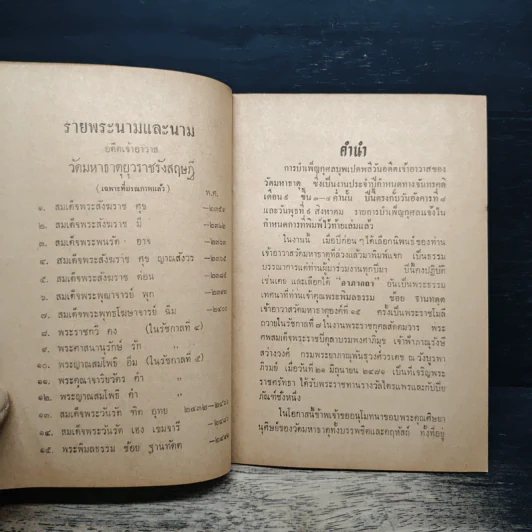 รายพระนามและนาม
อดีตเจ้าอาวาส
วัดมหาธาตุยุวราชรังสฤษฎิ์
(เฉพาะที่มรณภาพแล้ว)
พ.ศ.
๑. สมเด็จพระสังฆราช ศุข
๒. สมเด็จพระสังฆราช มี
๓. สมเด็จพระพนรัต อาจ
๔. สมเด็จพระสังฆราช ศุข ญาณสังวร
๕. สมเด็จพระสังฆราช ด่อน
๖. สมเด็จพระพุฒาจารย์ พุก
๗. สมเด็จพระพุทธโฆษาจารย์ ฉิม
๘. พระราชกวี คง (ในรัชกาลที่ ๔)
๙. พระศาสนานุรักษ์ รัก "
๑๐. พระญาณสมโพธิ อิ่ม (ในรัชกาลที่ ๕)
๑๑. พระคุณาจาริยวัตร คำ "
๑๒. พระญาณสมโพธิ คำ "
๑๓. สมเด็จพระวันรัต ฑิต อุทย
๑๔. สมเด็จพระวันรัต เฮง เขมจารี
๑๕. พระพิมลธรรม ช้อย ฐานทัตต
คำนำ
การบำเพ็ญกุศลบุพเปตพลีวันอดีตเจ้าอาวาสของ
วัดมหาธาตุ ซึ่งเป็นงานประจำปีกำหนดทางจันทรคติ
เดือน ๙ ขึ้น ๓–๔ ค่ำนั้น ปีนี้ตรงกับวันอังคารที่ ๗
และวันพุธที่ ๘ สิงหาคม รายการบำเพ็ญกุศลแจ้งใน
กำหนดการที่พิมพ์ไว้ท้ายเล่มแล้ว
ในงานนี้ เมื่อปีก่อน ๆ ได้เลือกนิพนธ์ของท่าน
เจ้าอาวาสวัดมหาธาตุที่ล่วงแล้วมาพิมพ์แจก เป็นธรรม
บรรณาการแด่ท่านผู้มาร่วมงานทุกปีมา ปีนี้คงปฏิบัติ
เช่นเคย และเลือกได้ "อาภากถา" อันเป็นพระธรรม
เทศนาที่ท่านเจ้าคุณพระพิมลธรรม ช้อย ฐานทตฺต
เจ้าอาวาสวัดมหาธาตุองค์ที่ ๑๕ ครั้งเป็นพระราชโมลี
ถวายในรัชกาลที่ ๗ ในงานพระราชกุศลสัตตมวาร พระ
ศพสมเด็จพระราชปิตุลาบรมพงศาภิมุข เจ้าฟ้าภาณุรังษี
สว่างวงศ์ กรมพระยาภาณุพันธุวงศ์วรเดช ณ วังบูรพา
ภิรมย์ เมื่อวันที่ ๒๑ มิถุนายน ๒๔๗๑ เป็นที่เจริญพระ
ราชศรัทธา ได้รับพระราชทานรางวัลไตรแพรและกัปปิย
ภัณฑ์ชั่งหนึ่ง
ในโอกาสนี้ข้าพเจ้าขออนุโมทนาขอบพระคุณศิษยา
นุศิษย์ของวัดมหาธาตุทั้งบรรพชิตและคฤหัสถ์ ทั้งที่อยู่